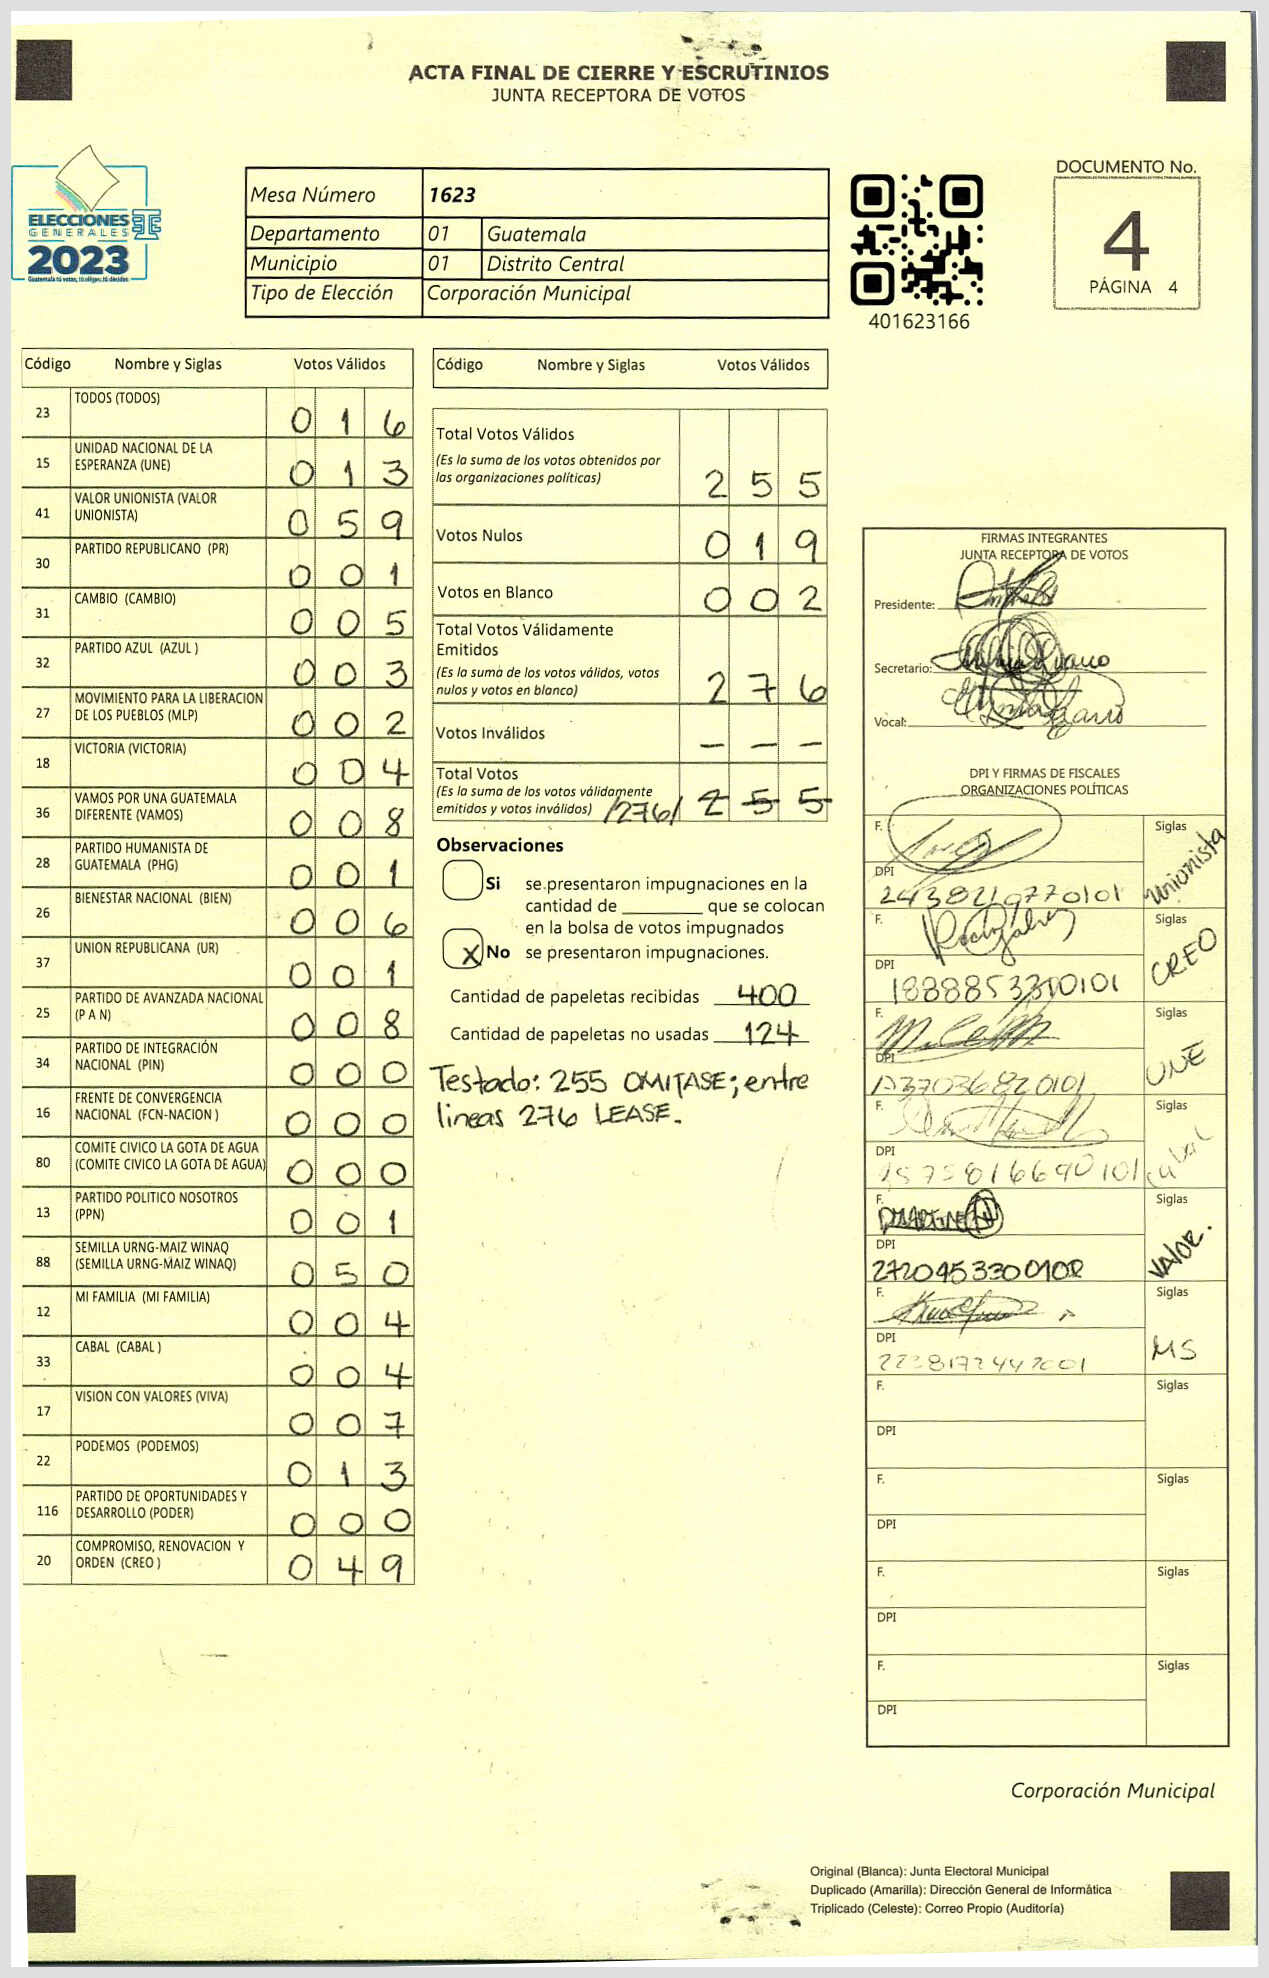 ACTA FINAL DE CIERRE Y ESCRUTINIOS
JUNTA RECEPTORA DE VOTOS
ELECCIONES
GENERALES
2023
Guatemala tú votas, tú eliges, tú decides
Mesa Número 1623
Departamento 01 Guatemala
Municipio 01 Distrito Central
Tipo de Elección Corporación Municipal
401623166
DOCUMENTO No.
4
PÁGINA 4
Código Nombre y Siglas Votos Válidos
23 TODOS (TODOS) 0 1 6
15 UNIDAD NACIONAL DE LA ESPERANZA (UNE) 0 1 3
41 VALOR UNIONISTA (VALOR UNIONISTA) 0 5 9
30 PARTIDO REPUBLICANO (PR) 0 0 1
31 CAMBIO (CAMBIO) 0 0 5
32 PARTIDO AZUL (AZUL ) 0 0 3
27 MOVIMIENTO PARA LA LIBERACION DE LOS PUEBLOS (MLP) 0 0 2
18 VICTORIA (VICTORIA) 0 0 4
36 VAMOS POR UNA GUATEMALA DIFERENTE (VAMOS) 0 0 8
28 PARTIDO HUMANISTA DE GUATEMALA (PHG) 0 0 1
26 BIENESTAR NACIONAL (BIEN) 0 0 6
37 UNION REPUBLICANA (UR) 0 0 1
25 PARTIDO DE AVANZADA NACIONAL (P A N) 0 0 8
34 PARTIDO DE INTEGRACIÓN NACIONAL (PIN) 0 0 0
16 FRENTE DE CONVERGENCIA NACIONAL (FCN-NACION ) 0 0 0
80 COMITE CIVICO LA GOTA DE AGUA (COMITE CIVICO LA GOTA DE AGUA) 0 0 0
13 PARTIDO POLITICO NOSOTROS (PPN) 0 0 1
88 SEMILLA URNG-MAIZ WINAQ (SEMILLA URNG-MAIZ WINAQ) 0 5 0
12 MI FAMILIA (MI FAMILIA) 0 0 4
33 CABAL (CABAL ) 0 0 4
17 VISION CON VALORES (VIVA) 0 0 7
22 PODEMOS (PODEMOS) 0 1 3
116 PARTIDO DE OPORTUNIDADES Y DESARROLLO (PODER) 0 0 0
20 COMPROMISO, RENOVACION Y ORDEN (CREO ) 0 4 9
Código Nombre y Siglas Votos Válidos
Total Votos Válidos
(Es la suma de los votos obtenidos por
las organizaciones políticas) 2 5 5
Votos Nulos 0 1 9
Votos en Blanco 0 0 2
Total Votos Válidamente
Emitidos
(Es la suma de los votos válidos, votos
nulos y votos en blanco) 2 7 6
Votos Inválidos — — —
Total Votos
(Es la suma de los votos válidamente
emitidos y votos inválidos) /276/ 2 5 5
Observaciones
Si se presentaron impugnaciones en la
cantidad de ________ que se colocan
en la bolsa de votos impugnados
X No se presentaron impugnaciones.
Cantidad de papeletas recibidas 400
Cantidad de papeletas no usadas 124
Testado: 255 OMITASE; entre
lineas 276 LEASE.
FIRMAS INTEGRANTES
JUNTA RECEPTORA DE VOTOS
Presidente:
Secretario:
Vocal:
DPI Y FIRMAS DE FISCALES
ORGANIZACIONES POLÍTICAS
F. Siglas Unionista
DPI 2438210770101
F. Siglas CREO
DPI 1888853310101
F. Siglas UNE
DPI
F. Siglas Cabal
DPI
F. Siglas VALOR.
DPI
F. Siglas MS
DPI
F. Siglas
DPI
F. Siglas
DPI
F. Siglas
DPI
F. Siglas
DPI
Corporación Municipal
Original (Blanca): Junta Electoral Municipal
Duplicado (Amarilla): Dirección General de Informática
Triplicado (Celeste): Correo Propio (Auditoría)